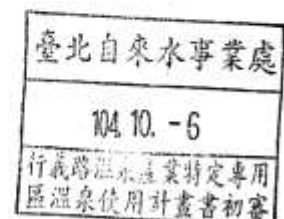 臺北自來水事業處
104.10.-6
行義路溫水產業特定專用
區溫泉使用計畫書初審